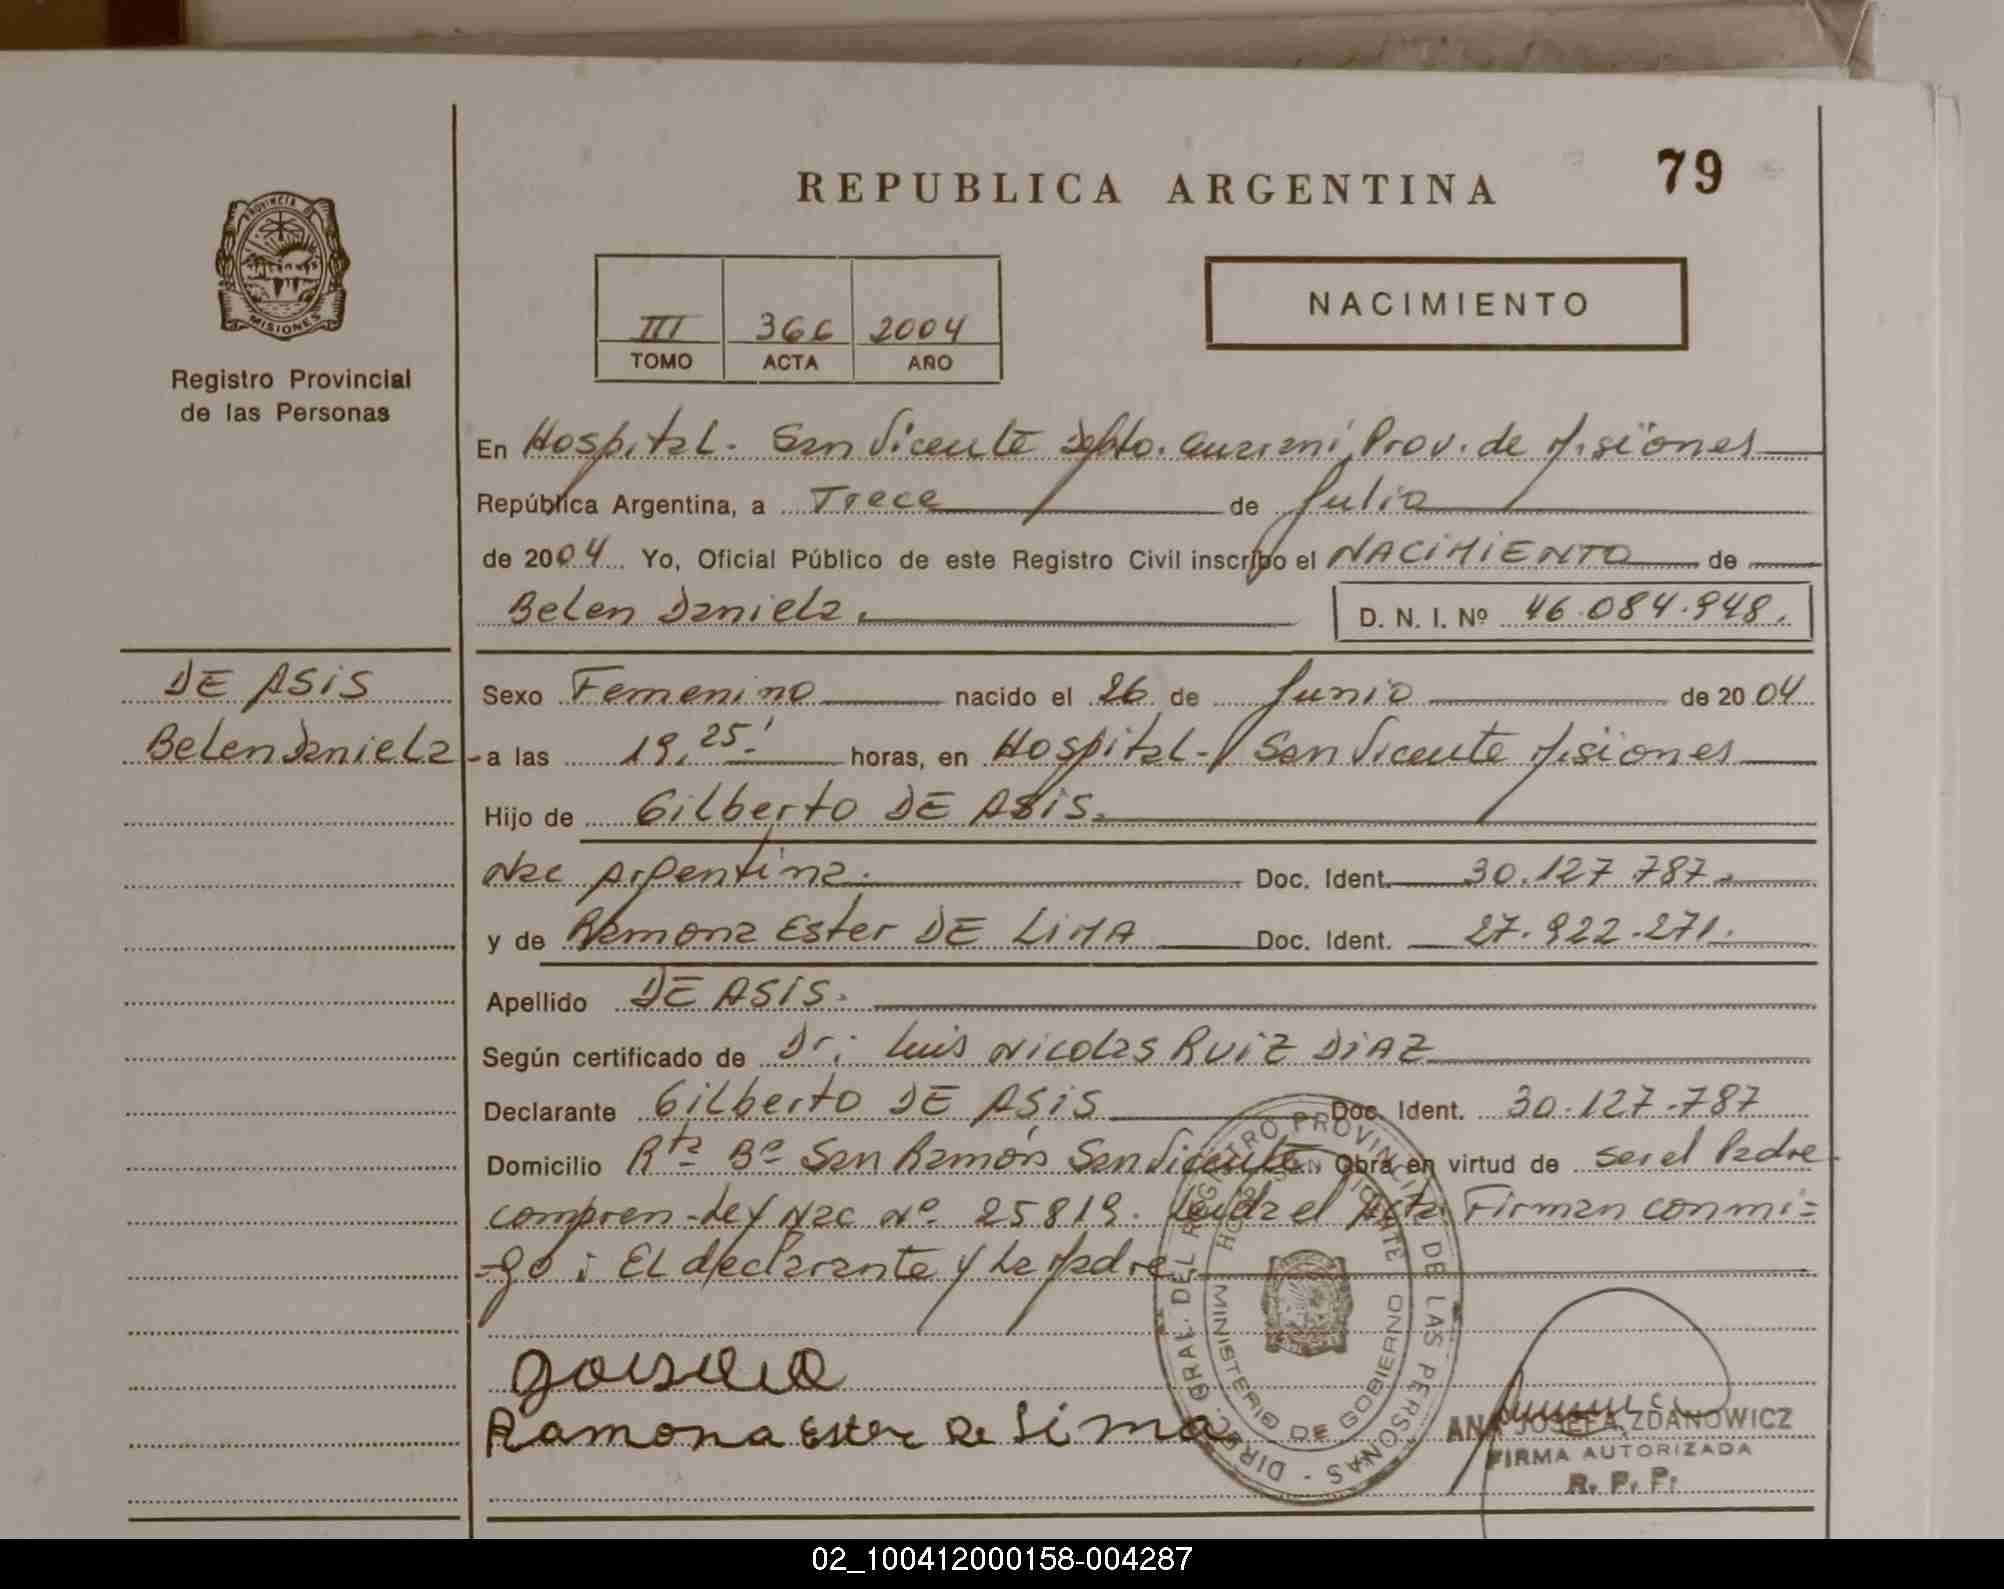 79
REPUBLICA ARGENTINA
PROVINCIA DE
MISIONES
Registro Provincial
de las Personas
III 366 2004
TOMO ACTA AÑO
NACIMIENTO
En Hospital - San Vicente Depto. Guarani Prov. de Misiones
República Argentina, a Trece de Julio
de 2004 Yo, Oficial Público de este Registro Civil inscribo el NACIMIENTO de
Belen Daniela. D. N. I. Nº 46.084.948.
DE ASIS
Belen Daniela
Sexo Femenino nacido el 26 de Junio de 2004
a las 19,25' horas, en Hospital - San Vicente Misiones
Hijo de Gilberto DE ASIS.
Nac Argentina. Doc. Ident. 30.127.787.
y de Ramona Ester DE LIMA Doc. Ident. 27.922.271.
Apellido DE ASIS.
Según certificado de Dr: Luis Nicolas RUIZ DIAZ
Declarante Gilberto DE ASIS Doc. Ident. 30.127.787
Domicilio Rta Bº San Ramón San Vicente Obra en virtud de ser el Padre
compren-ley Nac Nº 25819. Leida el Acta Firman conmi=
-go: El declarante y La Madre
Ramona Ester De Lima
DIREC. GRAL. DEL REGISTRO PROVINCIAL DE LAS PERSONAS -
HOSP. SAN VICENTE
MINISTERIO DE GOBIERNO
ANA JOSEFA ZDANOWICZ
FIRMA AUTORIZADA
R. P. P.
02_100412000158-004287